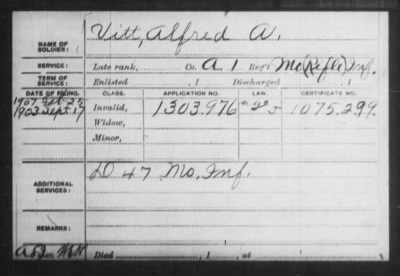 NAME OF SOLDIER: Vitt, Alfred A.
SERVICE: Late rank, Co. A, 1 Reg't Mo (Rifle) Inf.
TERM OF SERVICE: Enlisted , 1 Discharged , 1
DATE OF FILING. CLASS. APPLICATION NO. LAW. CERTIFICATE NO.
1907
1903 Sept. 17 Invalid, 1303.976 1075.299
Widow,
Minor,
ADDITIONAL SERVICES: D 47 Mo, Inf.
REMARKS:
Died , 1 , at